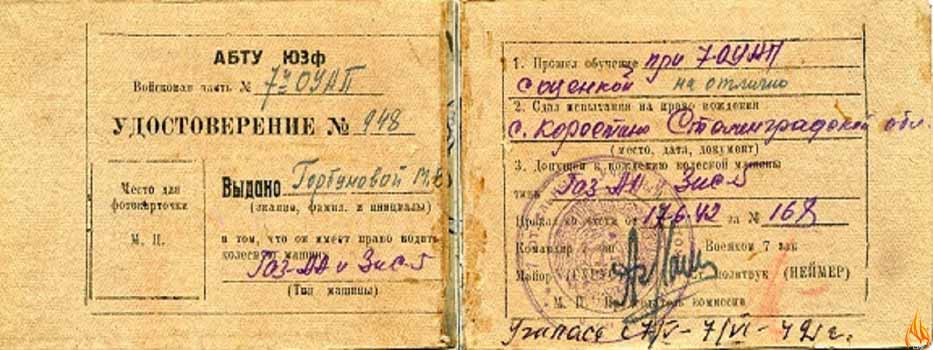 АБТУ ЮЗф
Войсковая часть № 7й ОУАП
УДОСТОВЕРЕНИЕ № 948
Место для
фотокарточки
М. П.
Выдано Горбуновой М.
(звание, фамил. и инициалы)
в том, что он имеет право водить
колесную машину
Газ-АА и Зис-5
(Тип машины)
1. Прошел обучение при 7 ОУАП
с оценкой на отлично
2. Сдал испытания на право вождения
с. Коростино Сталинградской обл.
(место, дата, документ)
3. Допущен к вождению колесной машины
типа Газ-АА и Зис-5
Приказ по части от 17.6.42 за № 168
Командир 7 Военком 7
Майор политрук (НЕЙМЕР)
М. П. Председатель комиссии
Училась с 7/V - 7/VI - 42 г.